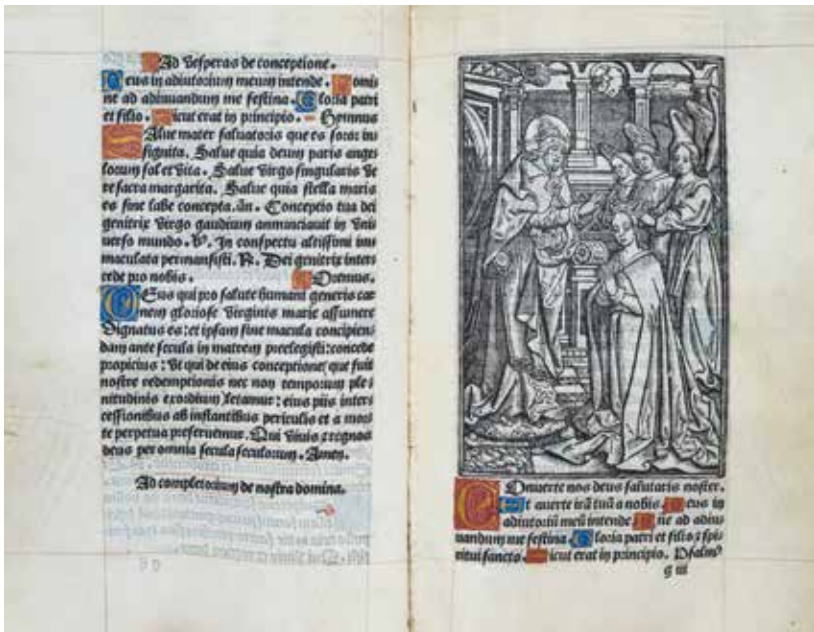 Ad Vesperas de conceptione.
Deus in adiutorium meum intende. Domi
ne ad adiuuandum me festina. Gloria patri
et filio. Sicut erat in principio. Hymnus
Salue mater saluatoris que es soror in
signita. Salue quia deum paris ange
lorum sol et vita. Salue virgo singularis ve
re sacra margarita. Salue quia stella maris
es sine labe concepta. añ. Conceptio tua dei
genitrix virgo gaudium annunciauit in vni
uerso mundo. V. In conspectu altissimi im
maculata permansisti. R. Dei genitrix inter
cede pro nobis. Oremus.
Deus qui pro salute humani generis car
nem gloriose virginis marie assumere
dignatus es: et ipsam sine macula concipien
dam ante secula in matrem preelegisti: concede
propicius: vt qui de eius conceptione que fuit
nostre redemptionis nec non temporum ple
nitudinis exordium letamur: eius piis inter
cessionibus ab instantibus periculis et a mor
te perpetua preseruemur. Qui viuis ⁊ regnas
deus per omnia secula seculorum. Amen.
Ad completorium de nostra domina.
Conuerte nos deus salutaris noster.
Et auerte irã tuã a nobis. Deus in
adiutoriũ meũ intende. Domine ad adiu
uandum me festina. Gloria patri et filio ⁊ spi
ritui sancto. Sicut erat in principio. Psalmꝰ
g iii